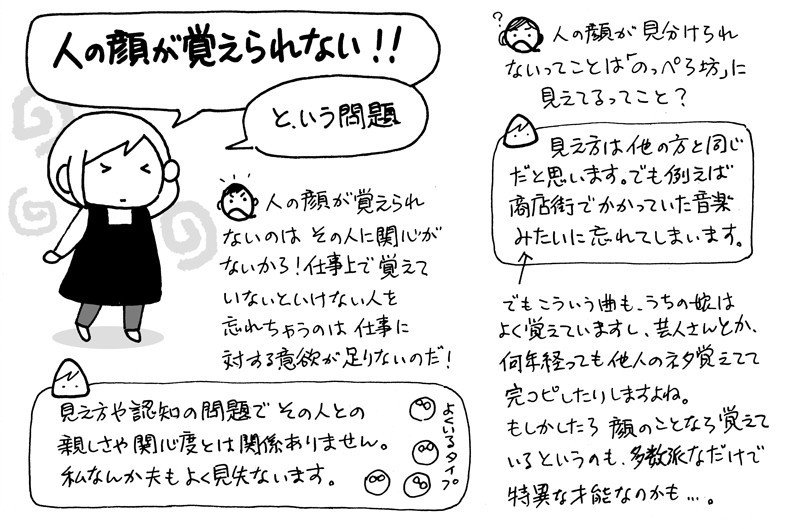 人の顔が覚えられない！！
という問題
人の顔が覚えられ
ないのは その人に関心が
ないから！仕事上で覚えて
いないといけない人を
忘れちゃうのは 仕事に
対する意欲が足りないのだ！
見え方や認知の問題で その人との
親しさや関心度とは関係ありません。
私なんか夫もよく見失ないます。
よくいるタイプ
?
人の顔が見分けられ
ないってことは「のっぺら坊」に
見えてるってこと？
見え方は他の方と同じ
だと思います。でも例えば
商店街でかかっていた音楽
みたいに忘れてしまいます。
でもこういう曲も、うちの娘は
よく覚えていますし、芸人さんとか、
何年経っても他人のネタ覚えてて
完コピしたりしますよね。
もしかしたら 顔のことなら覚えて
いるというのも、多数派なだけで
特異な才能なのかも…。